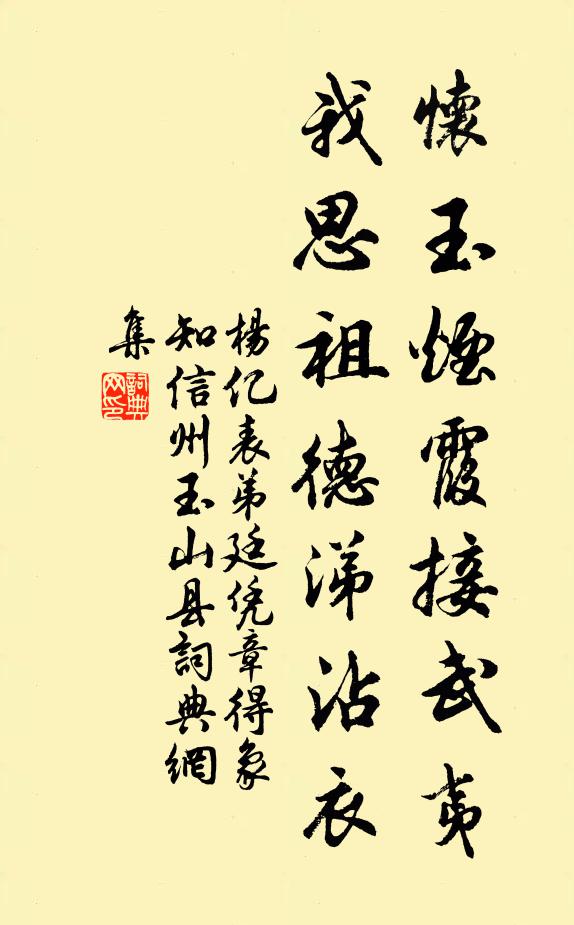 懷玉煙霞接武夷
我思祖德涕沾衣
楊億表弟廷凭章得象
知信州玉山县詞典網
集
詞典網印